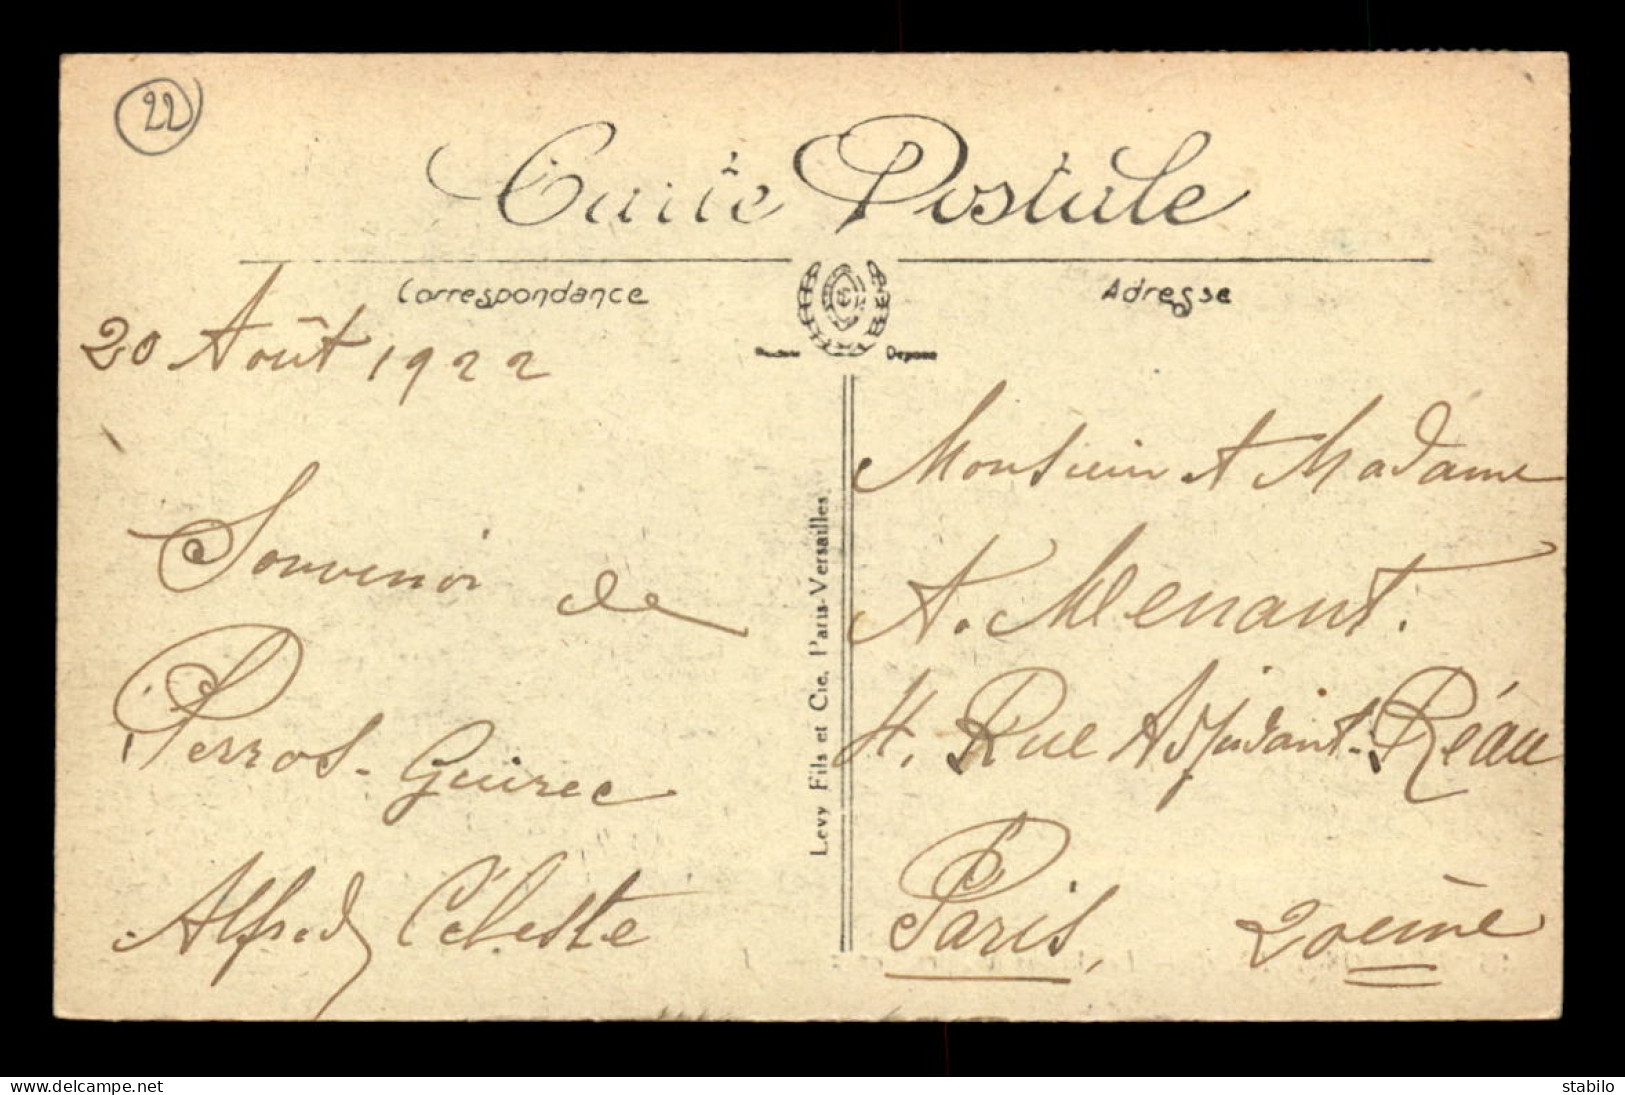 22
Carte Postale
Correspondance
Adresse
20 Août 1922
Souvenir de
Perros-Guirec
Alfred Céleste
Levy Fils et Cie, Paris-Versailles
Monsieur et Madame
A. Menant.
4, Rue Adjudant-Réau
Paris, 20eme
www.delcampe.net
stabilo